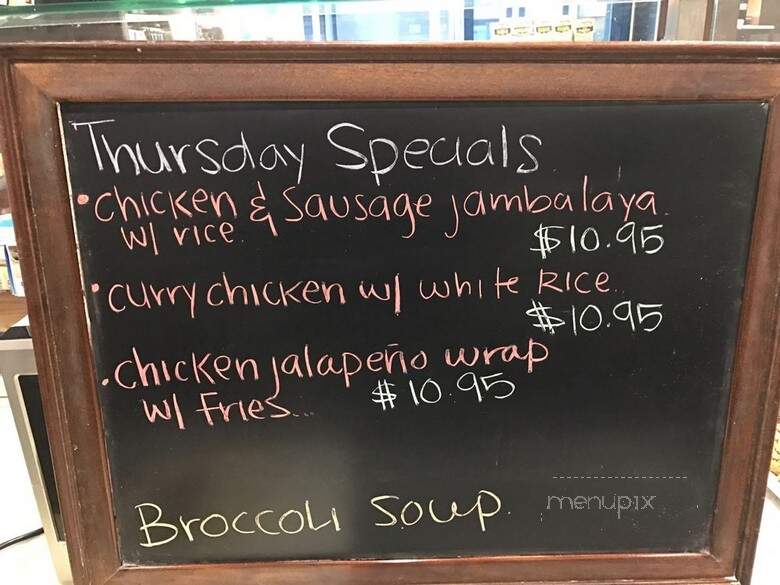 Thursday Specials
• Chicken & Sausage jambalaya
w/ rice.
$10.95
• curry chicken w/ white RICE..
$10.95
• chicken jalapeño wrap
w/ Fries... $10.95
Broccoli soup.
menupix